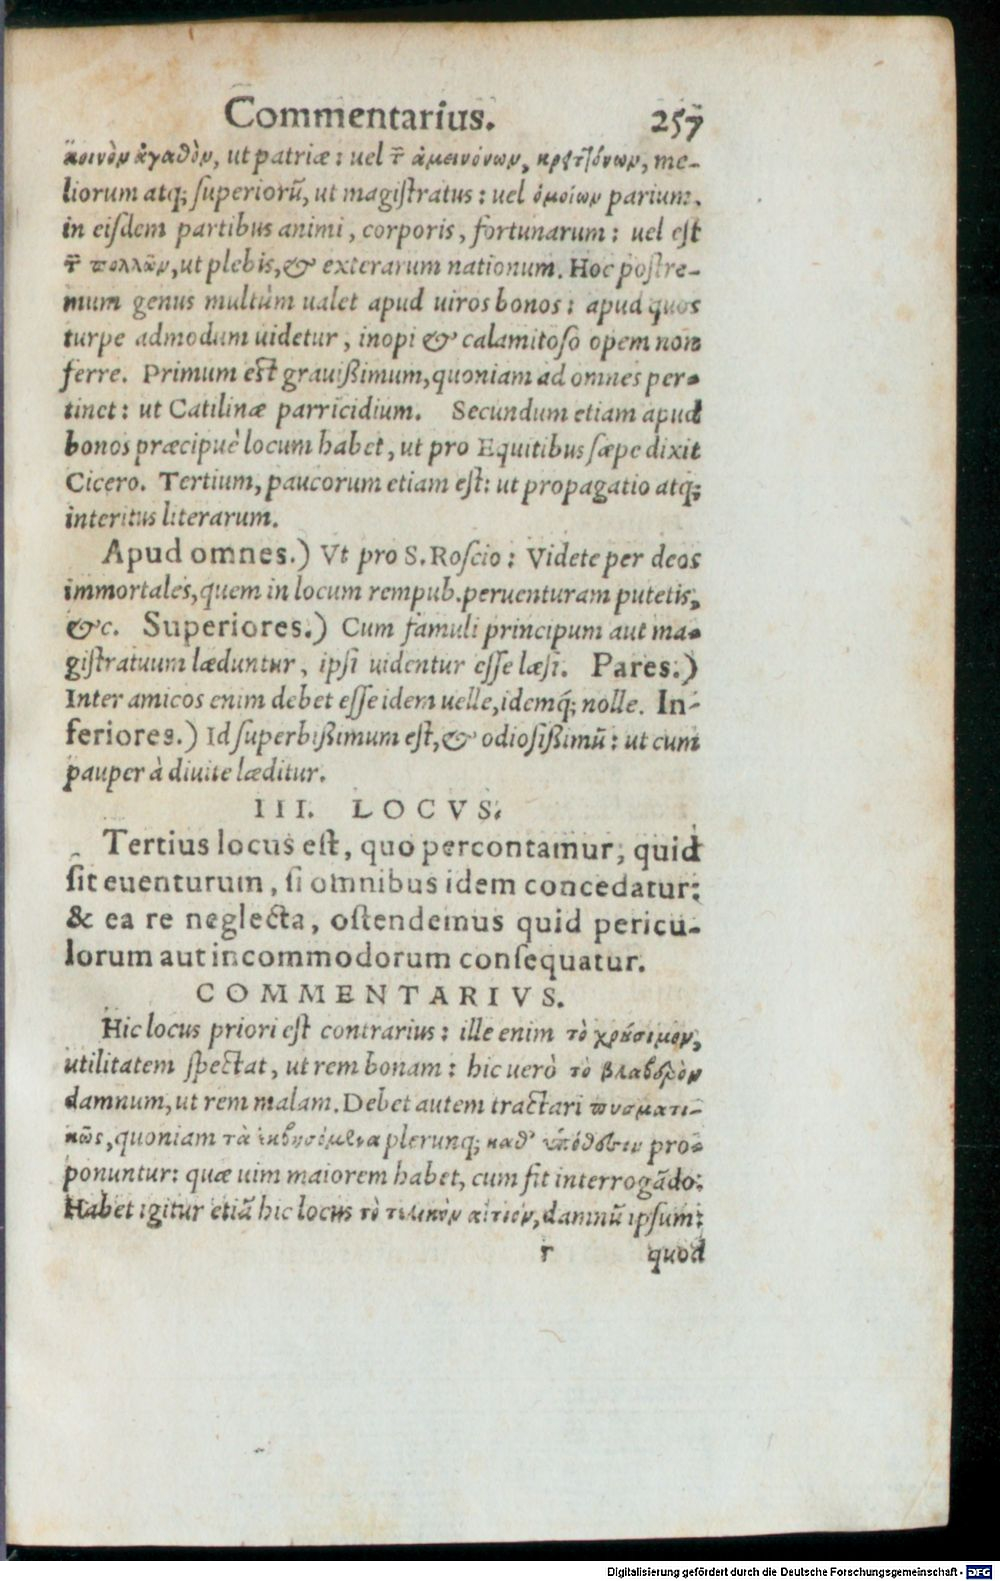 Commentarius. 257
κοινὸν ἀγαθὸν, ut patriæ: uel τ῀ ἀμεινόνων, κρειττόνων, me-
liorum atq; ſuperiorũ, ut magiſtratus: uel ὁμοίων parium,
in eiſdem partibus animi, corporis, fortunarum: uel est
τ῀ πολλῶν, ut plebis, & exterarum nationum. Hoc poſtre-
mum genus multùm ualet apud uiros bonos: apud quos
turpe admodum uidetur, inopi & calamitoſo opem non
ferre. Primum est grauißimum, quoniam ad omnes per-
tinet: ut Catilinæ parricidium. Secundum etiam apud
bonos præcipuè locum habet, ut pro Equitibus ſæpe dixit
Cicero. Tertium, paucorum etiam eſt: ut propagatio atq;
interitus literarum.
Apud omnes.) Vt pro S. Roſcio: Videte per deos
immortales, quem in locum rempub. peruenturam putetis,
&c. Superiores.) Cum famuli principum aut ma-
giſtratuum læduntur, ipſi uidentur eſſe læſi. Pares.)
Inter amicos enim debet eſſe idem uelle, idemq́; nolle. In-
feriores.) Id ſuperbißimum eſt, & odioſißimũ: ut cum
pauper à diuite læditur.
III. LOCVS.
Tertius locus eſt, quo percontamur, quid
ſit euenturum, ſi omnibus idem concedatur:
& ea re neglecta, oſtendemus quid pericu-
lorum aut incommodorum conſequatur.
COMMENTARIVS.
Hic locus priori eſt contrarius: ille enim τὸ χρήσιμον,
utilitatem ſpectat, ut rem bonam: hic uerò τὸ βλαβερὸν
damnum, ut rem malam. Debet autem tractari πυσματι-
κῶς, quoniam τὰ ἐκβησόμενα plerunq; καθ' ὑπόθεσιν pro-
ponuntur: quæ uim maiorem habet, cum fit interrogãdo.
Habet igitur etiã hic locus τὸ τελικὸν αἴτιον, damnũ ipſum:
r quod
Digitalisierung gefördert durch die Deutsche Forschungsgemeinschaft - DFG